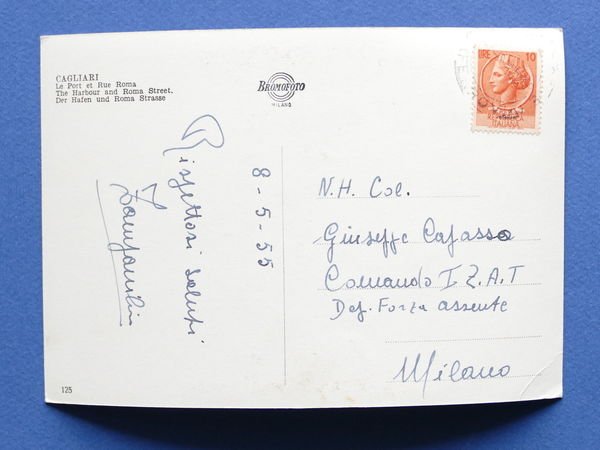 CAGLIARI
Le Port et Rue Roma
The Harbour and Roma Street.
Der Hafen und Roma Strasse
BROMOFOTO
MILANO
LIRE 10
Rispettosi saluti
8-5-55
N.H. Col.
Giuseppe Cafasso
Comando I Z.A.T
Dep. Forza assente
Milano
125